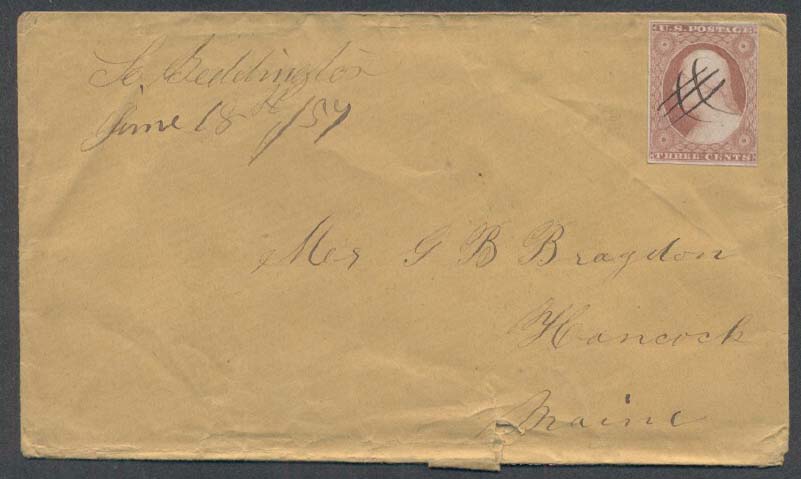 So. Beddington
June 18th /57
U.S. POSTAGE
THREE CENTS
Mrs G B Bragdon
Hancock
Maine